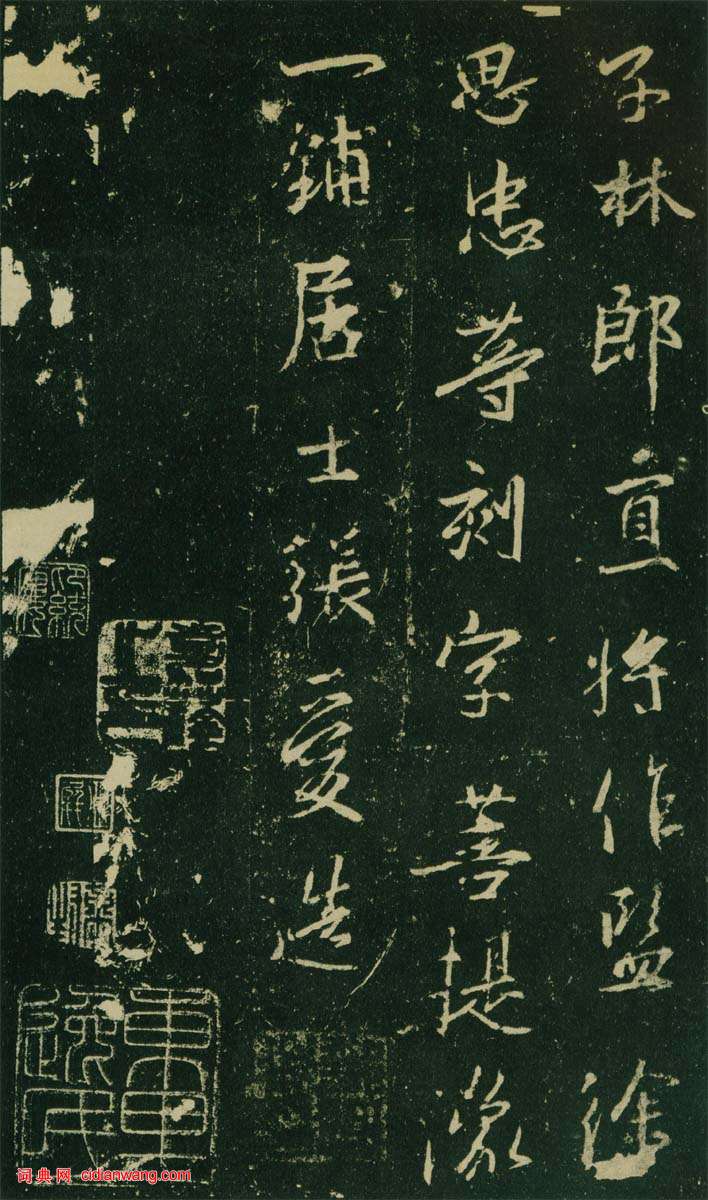 子林郎直將作監徐
思忠等刻字菩提像
一鋪居士張愛造
词典网 - cidianwang.com